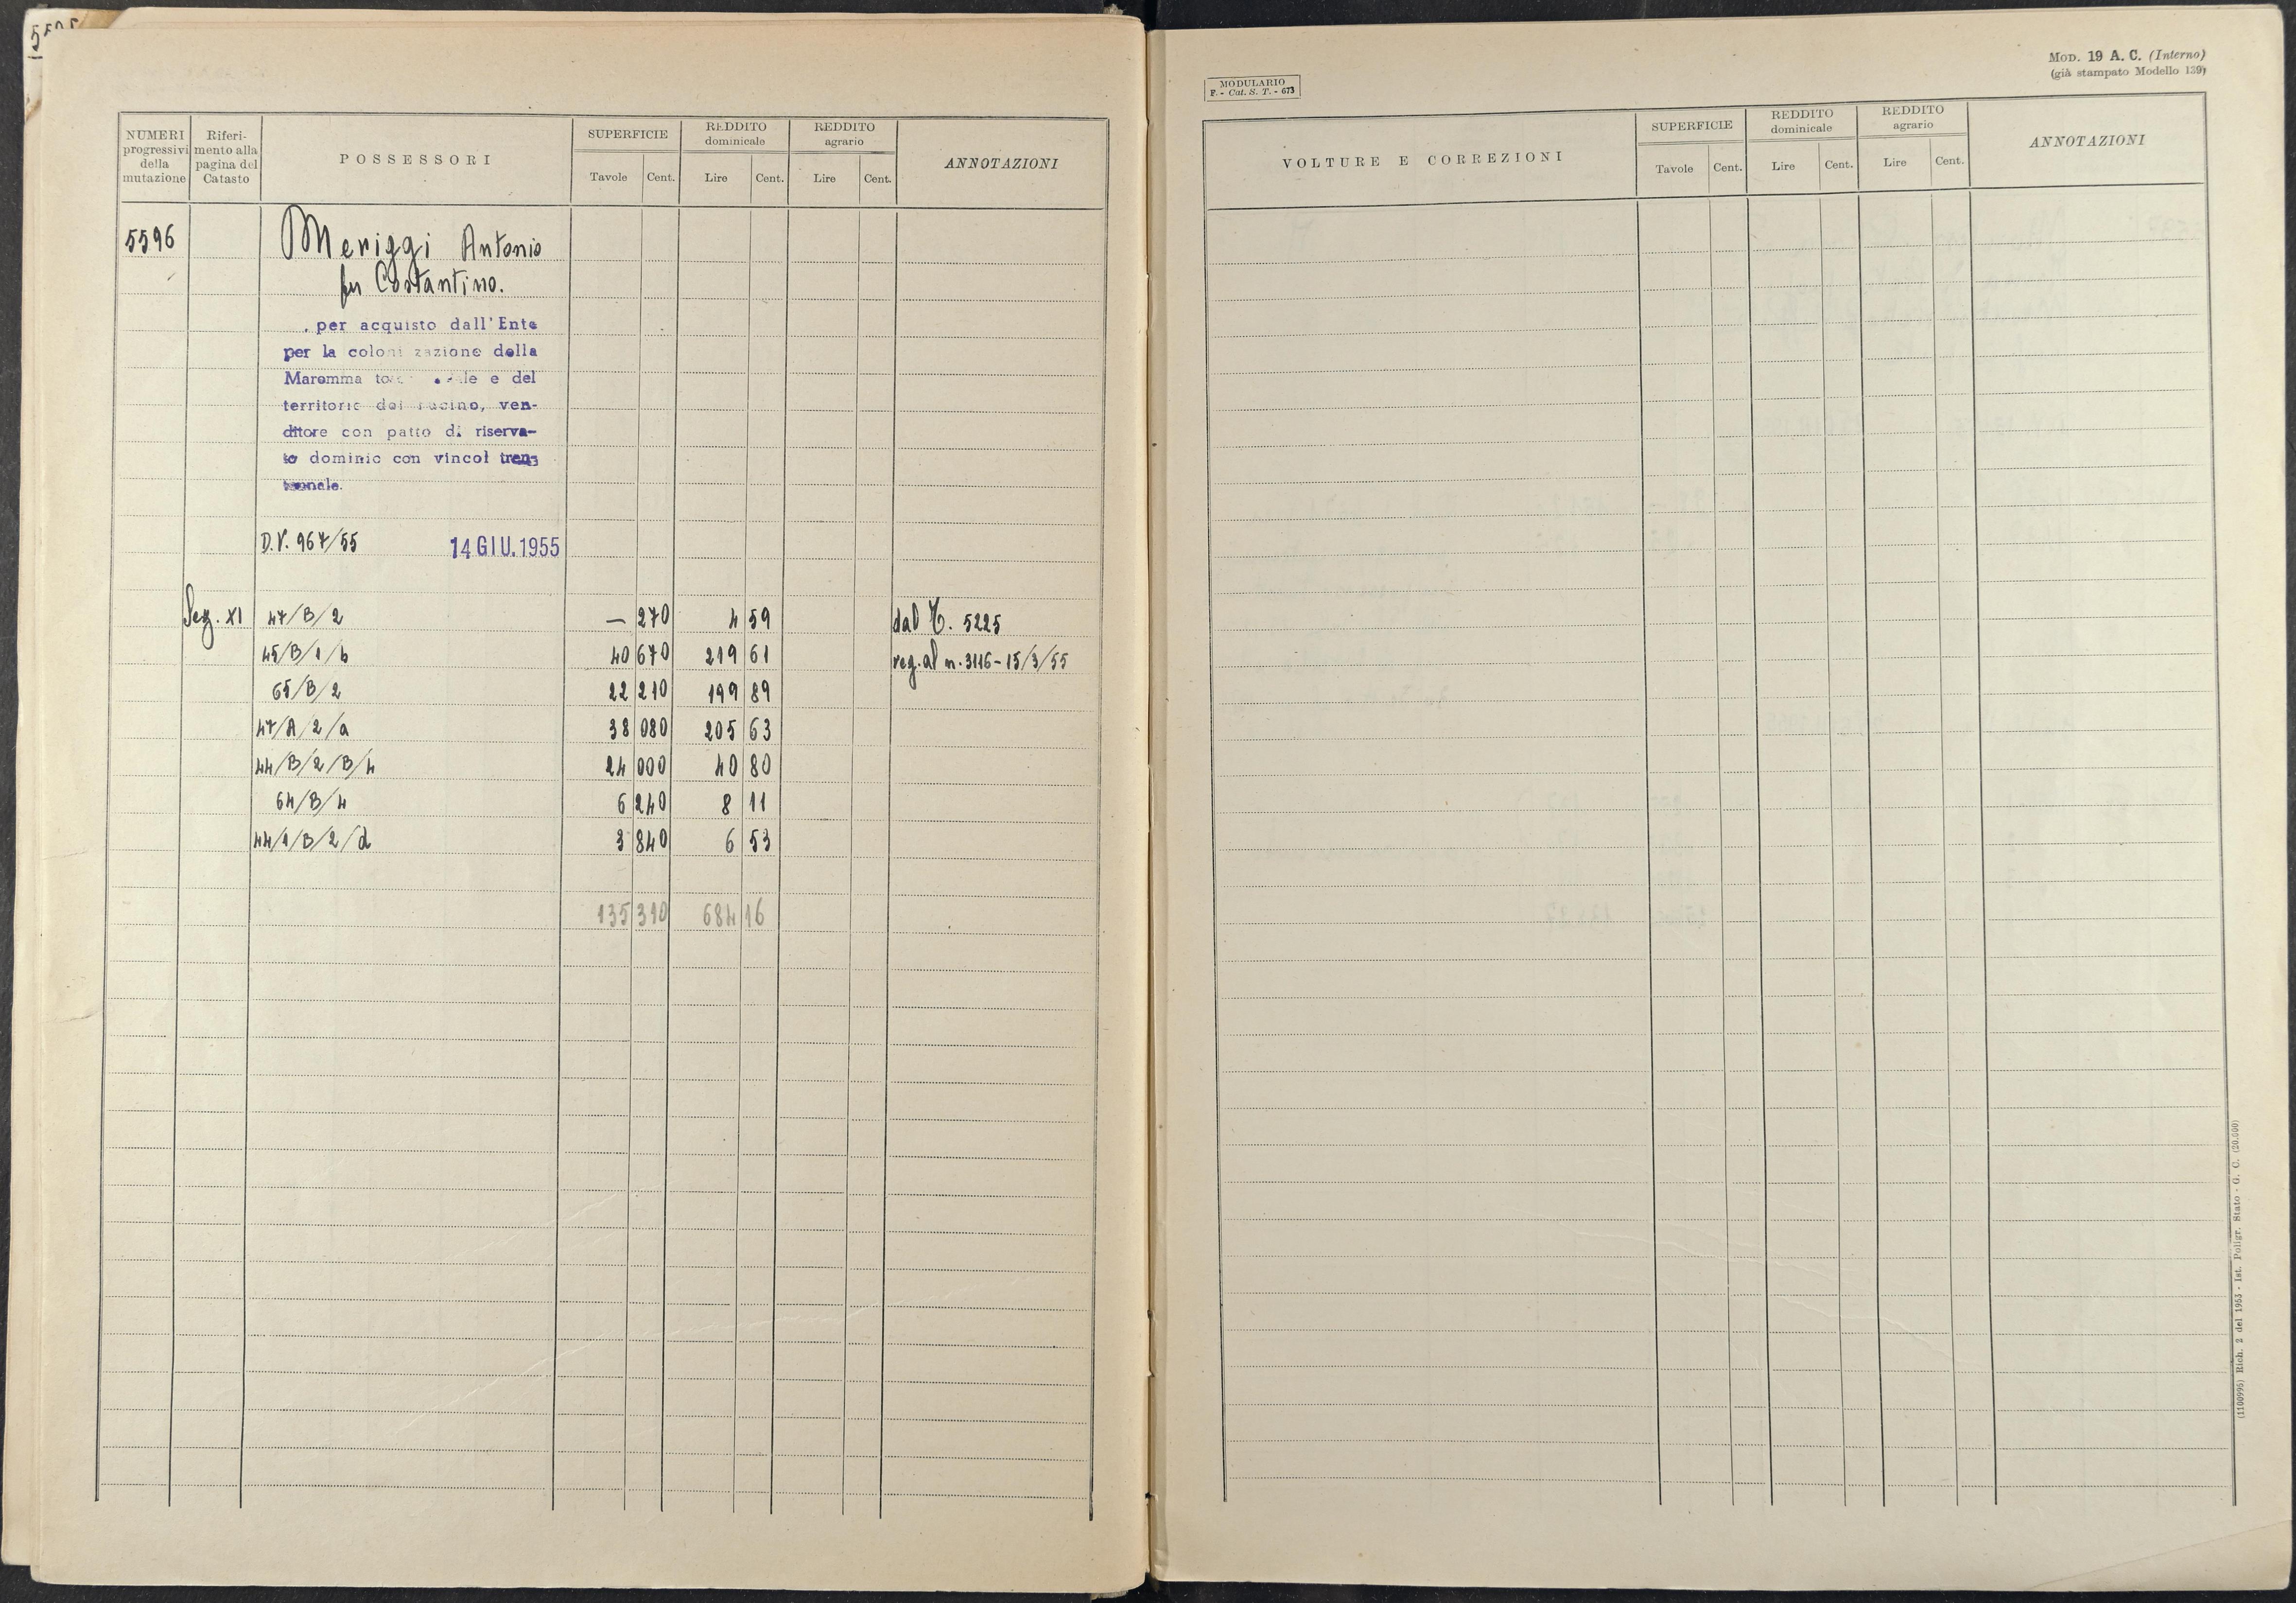 NUMERI progressivi della mutazione
Riferimento alla pagina del Catasto
POSSESSORI
SUPERFICIE
Tavole Cent.
REDDITO dominicale
Lire Cent.
REDDITO agrario
Lire Cent.
ANNOTAZIONI
5596 Meriggi Antonio
fu Costantino.
per acquisto dall'Ente
per la coloni zazione della
Maremma e del
territorio del ven-
ditore con patto di riserva-
to dominio con vincol tren-
D.V. 967/55 14 GIU. 1955
Sez. XI 47/B/2 — 270 4 59 dal C. 5225
45/B/1/b 40 670 219 61 reg. al n. 3116 - 15/3/55
65/B/2 22 210 199 89
47/A/2/a 38 080 205 63
44/B/2/B/4 24 000 40 80
64/B/4 6 240 8 11
44/1/B/2/d 3 840 6 53
135 310 684 16
MODULARIO
F. - Cat. S. T. - 673
MOD. 19 A. C. (Interno)
(già stampato Modello 139)
VOLTURE E CORREZIONI
SUPERFICIE
Tavole Cent.
REDDITO dominicale
Lire Cent.
REDDITO agrario
Lire Cent.
ANNOTAZIONI
(1100996) Rich. 2 del 1953 - Ist. Poligr. Stato - G. C. (20.000)